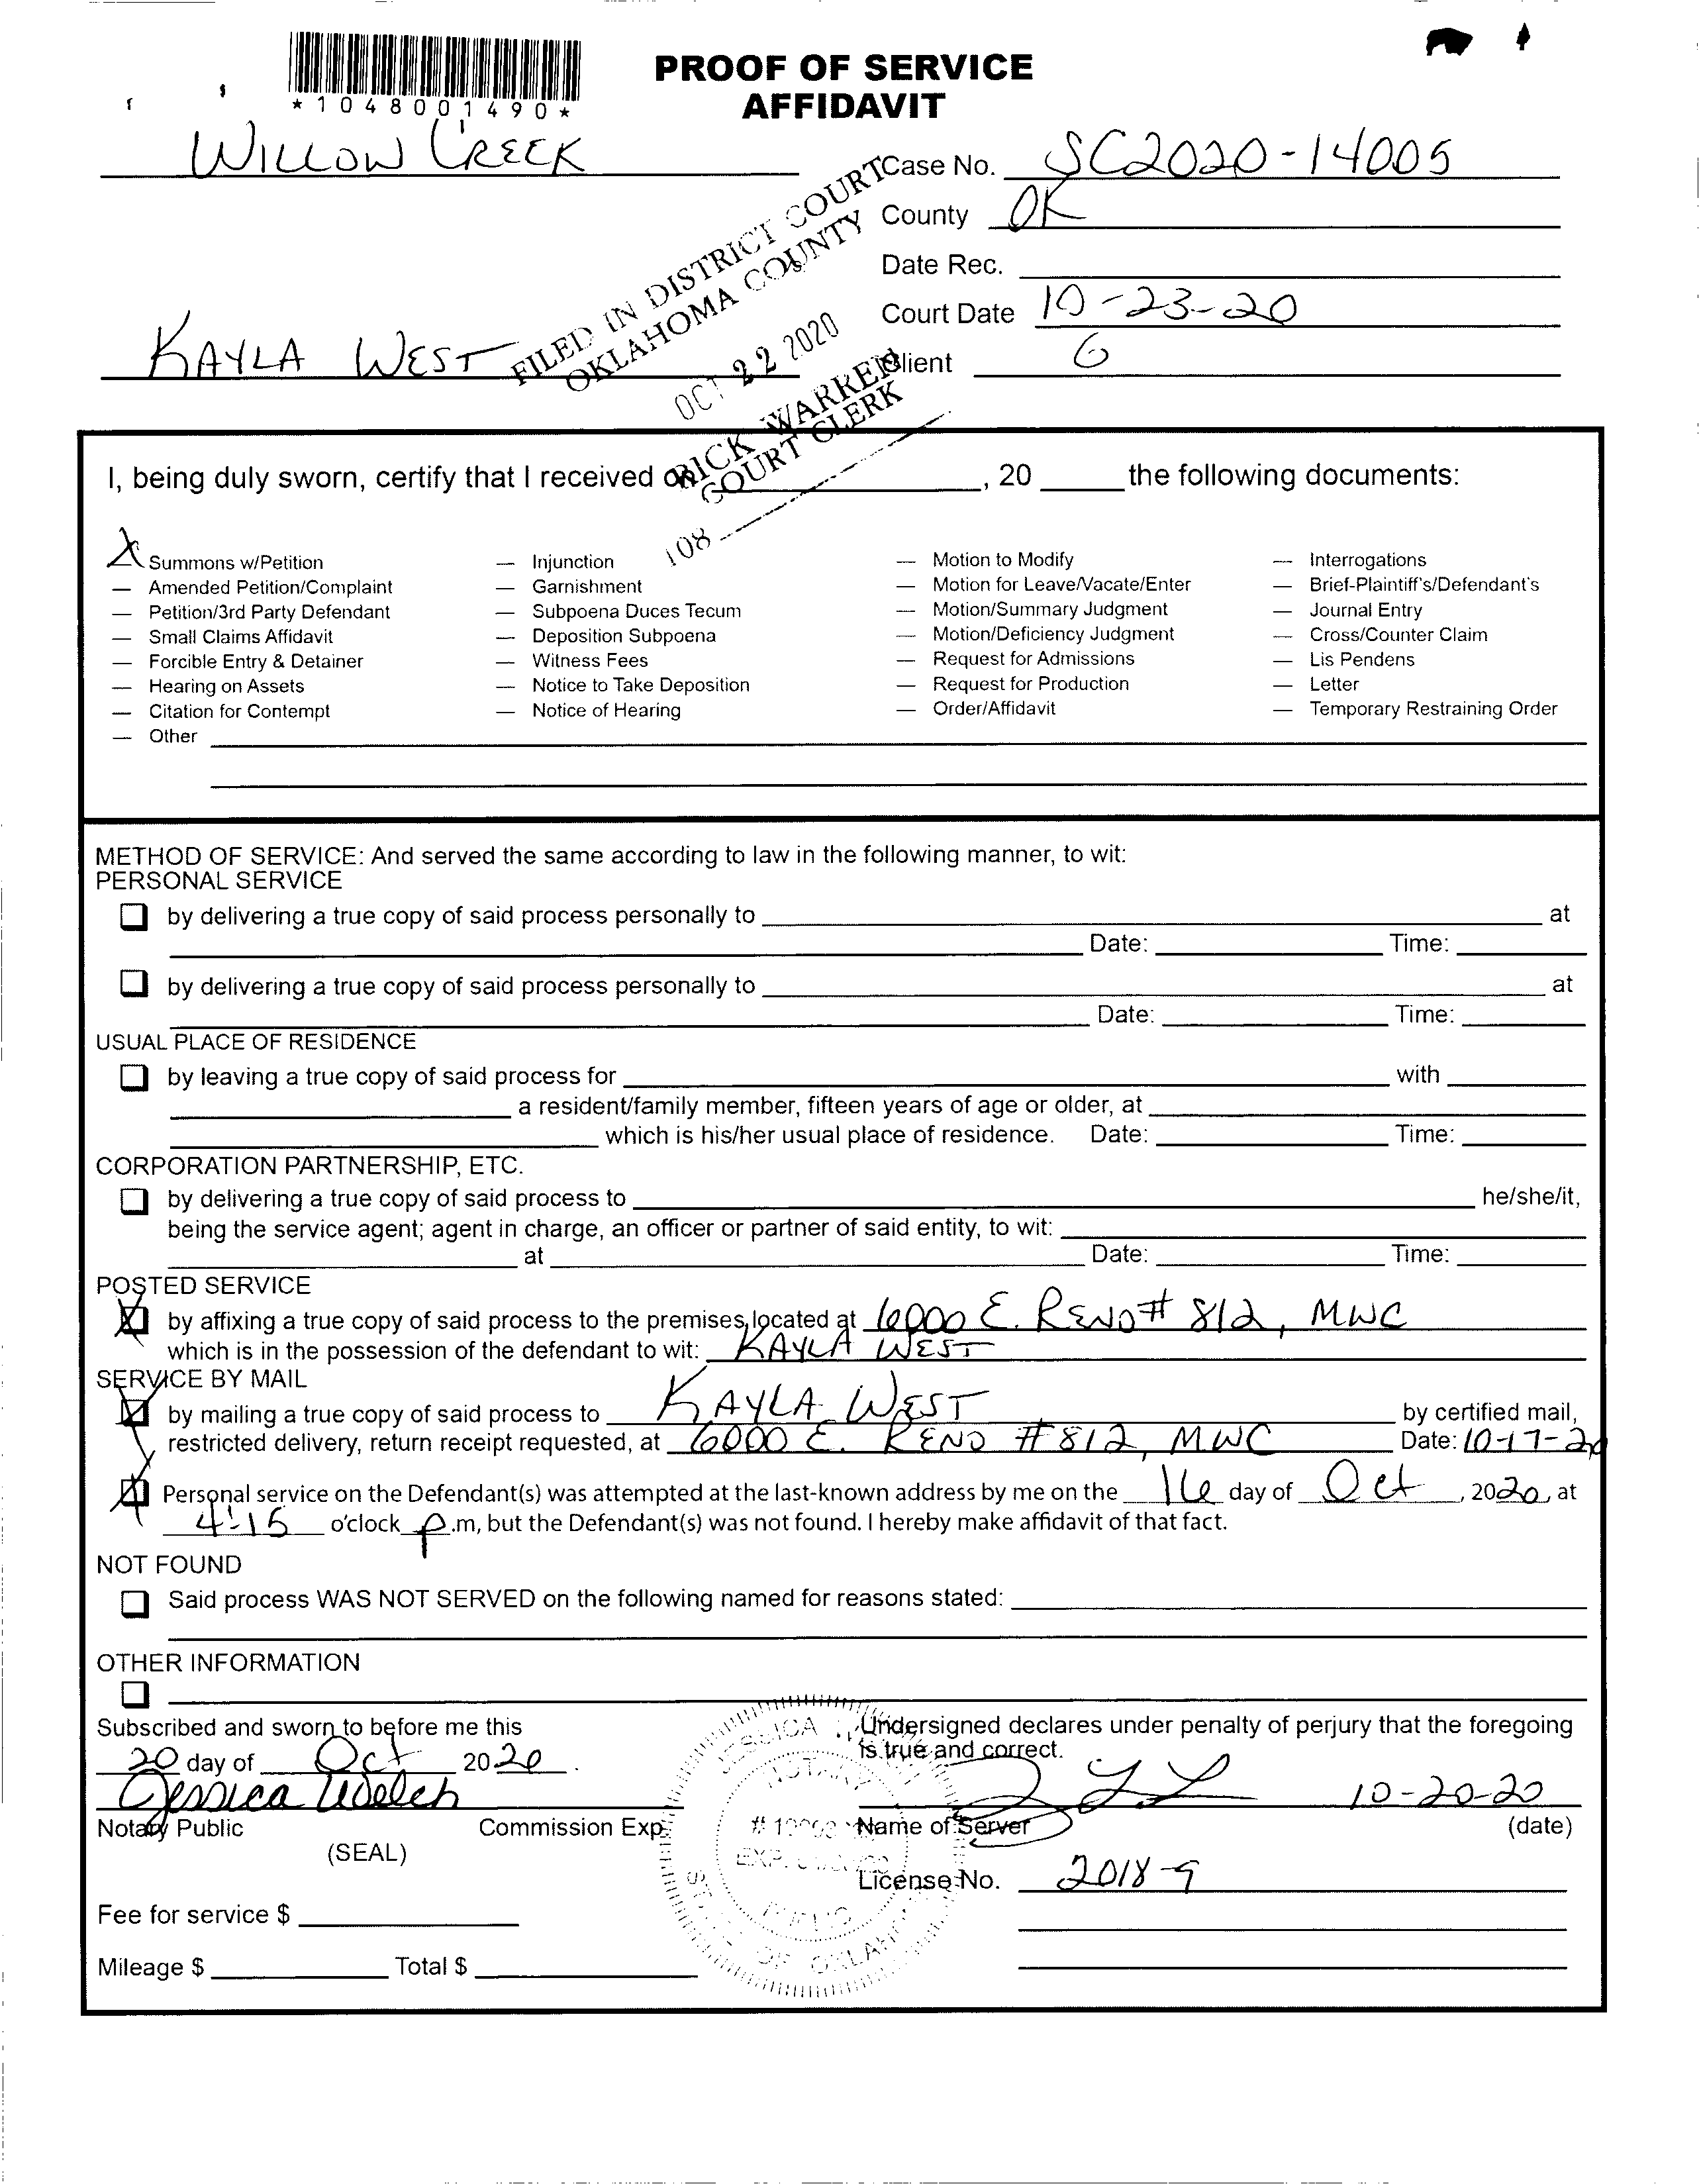 PROOF OF SERVICE
AFFIDAVIT
*1048001490*
WILLOW CREEK
Case No. SC2020-14005
County OK
Date Rec.
Court Date 10-23-20
KAYLA WEST
Client 6
FILED IN DISTRICT COURT
OKLAHOMA COUNTY
OCT 22 2020
RICK WARREN
COURT CLERK
108
I, being duly sworn, certify that I received on , 20 the following documents:
X Summons w/Petition
— Amended Petition/Complaint
— Petition/3rd Party Defendant
— Small Claims Affidavit
— Forcible Entry & Detainer
— Hearing on Assets
— Citation for Contempt
— Other
— Injunction
— Garnishment
— Subpoena Duces Tecum
— Deposition Subpoena
— Witness Fees
— Notice to Take Deposition
— Notice of Hearing
— Motion to Modify
— Motion for Leave/Vacate/Enter
— Motion/Summary Judgment
— Motion/Deficiency Judgment
— Request for Admissions
— Request for Production
— Order/Affidavit
— Interrogations
— Brief-Plaintiff's/Defendant's
— Journal Entry
— Cross/Counter Claim
— Lis Pendens
— Letter
— Temporary Restraining Order
METHOD OF SERVICE: And served the same according to law in the following manner, to wit:
PERSONAL SERVICE
by delivering a true copy of said process personally to at
Date: Time:
by delivering a true copy of said process personally to at
Date: Time:
USUAL PLACE OF RESIDENCE
by leaving a true copy of said process for with
a resident/family member, fifteen years of age or older, at
which is his/her usual place of residence. Date: Time:
CORPORATION PARTNERSHIP, ETC.
by delivering a true copy of said process to he/she/it,
being the service agent; agent in charge, an officer or partner of said entity, to wit:
at Date: Time:
POSTED SERVICE
X by affixing a true copy of said process to the premises located at 6000 E. RENO # 812, MWC
which is in the possession of the defendant to wit: KAYLA WEST
SERVICE BY MAIL
X by mailing a true copy of said process to KAYLA WEST by certified mail,
restricted delivery, return receipt requested, at 6000 E. RENO # 812, MWC Date: 10-17-20
X Personal service on the Defendant(s) was attempted at the last-known address by me on the 16 day of Oct, 2020, at
4:15 o'clock p.m, but the Defendant(s) was not found. I hereby make affidavit of that fact.
NOT FOUND
Said process WAS NOT SERVED on the following named for reasons stated:
OTHER INFORMATION
Subscribed and sworn to before me this
20 day of Oct 2020.
Jessica Welch
Notary Public Commission Exp.
(SEAL)
Fee for service $
Mileage $ Total $
JESSICA
NOTARY
EXP.
PUBLIC
STATE OF OKLAHOMA
Undersigned declares under penalty of perjury that the foregoing
is true and correct.
10-20-20
Name of Server (date)
License No. 2018-9